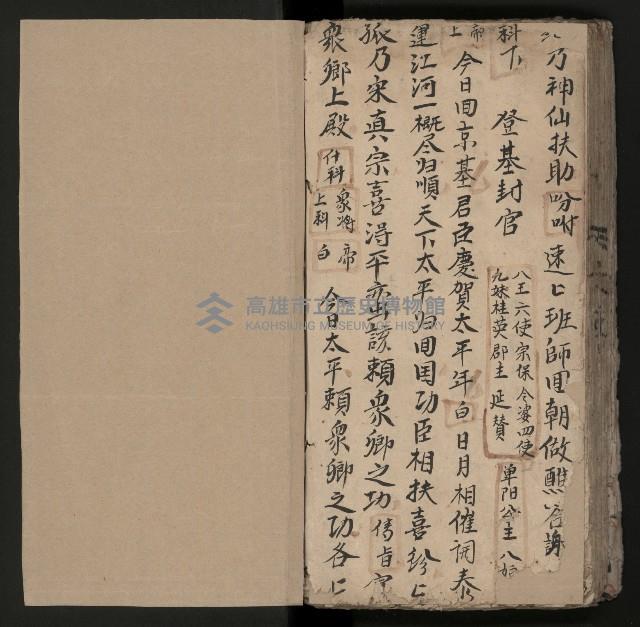 乃神仙扶助吩咐速匕班師回朝做醮答謝
科下 登基封官 八王六使宗保令婆四使
九妹桂英郡主延贊 单阳公主八姐
帝上 今日回京基君臣慶賀太平年 白 日月相催词泰
運江河一概尽归順天下太平归回国功臣相扶喜紛匕
孤乃宋真宗喜得平
賴衆卿之功 傳旨宣
衆卿上殿 什科 衆将上科 帝白 今日太平賴衆卿之功各匕
高雄市立歷史博物館
KAOHSIUNG MUSEUM OF HISTORY